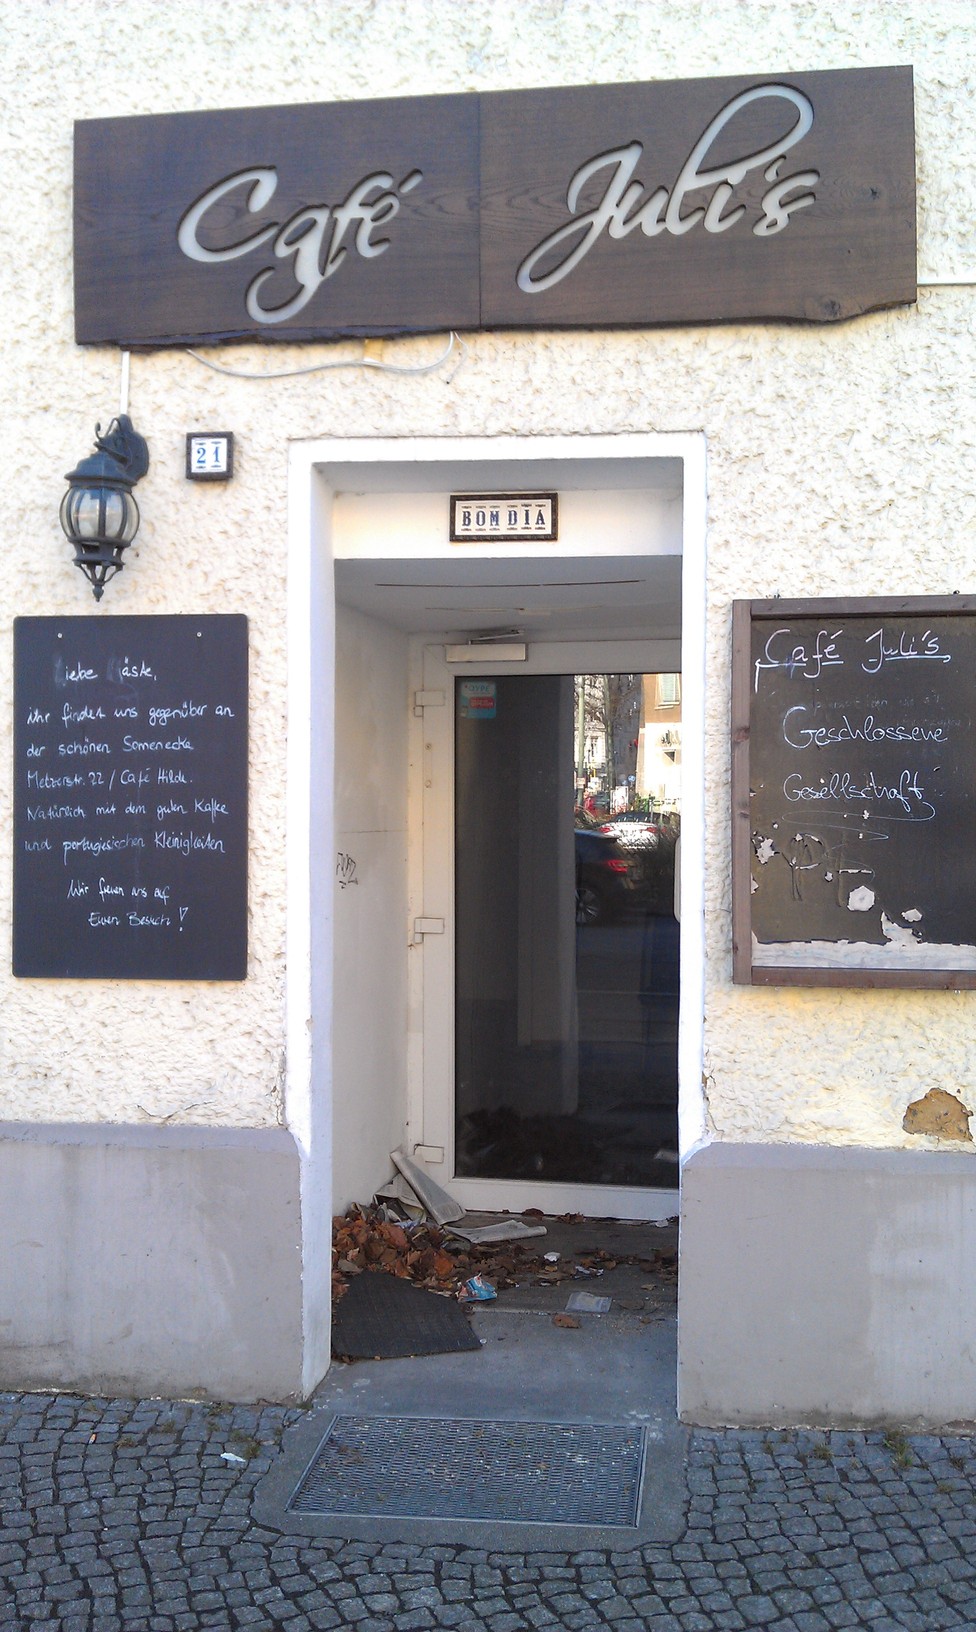 Café Juli's
21
BOM DIA
Liebe Gäste,
ihr findet uns gegenüber an
der schönen Sonnenecke
Metzerstr. 22 / Café Hilde.
Natürlich mit dem guten Kaffee
und portugiesischen Kleinigkeiten
Wir freuen uns auf
Euren Besuch!
Café Juli's,
Geschlossene
Gesellschaft